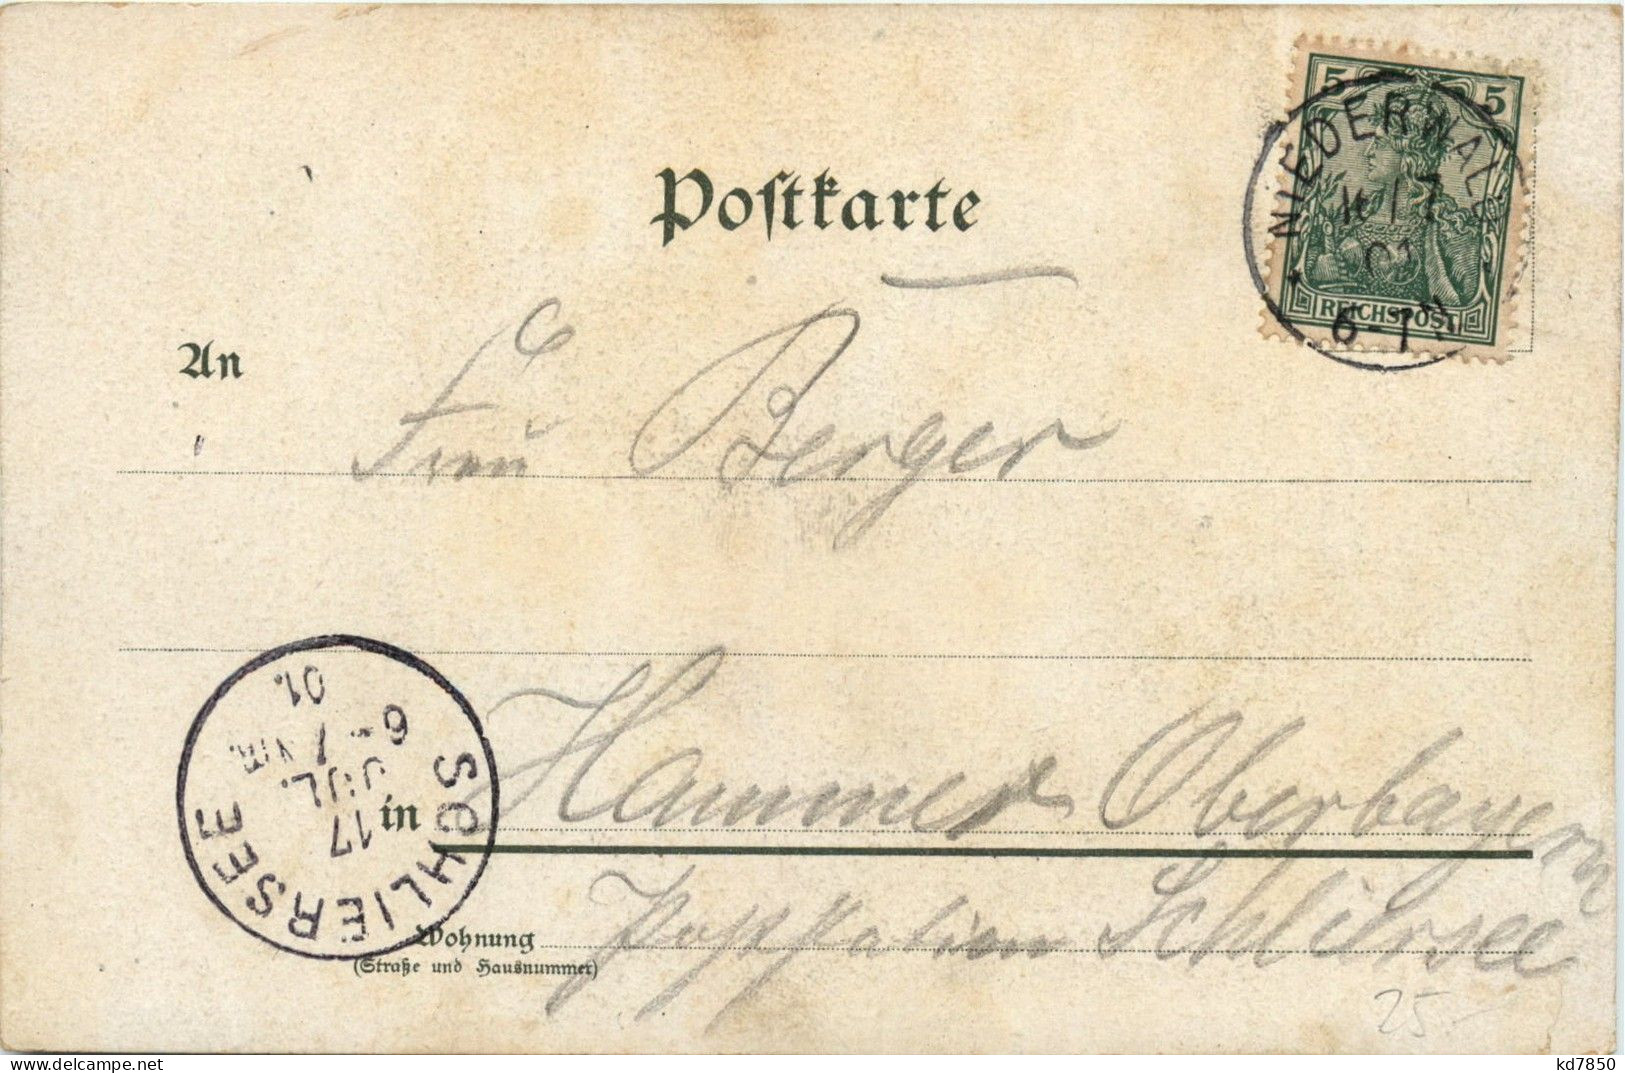 5 5
NIEDERWALD
16/7
01
6-7 N
REICHSPOST
Postkarte
An
Frau Berger
SCHLIERSEE
17
JUL.
6-7 VM.
01.
in Hammer Oberbayern
Wohnung Poststation Schliersee
(Straße und Hausnummer)
25.-
kd7850